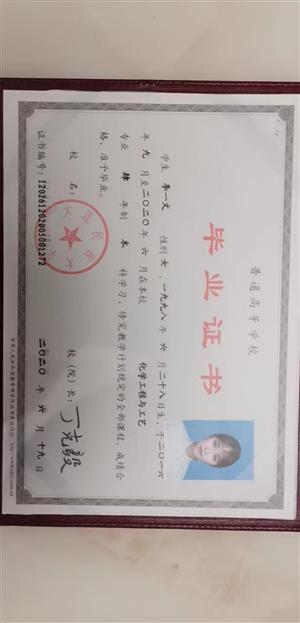 普通高等学校
毕业证书
学生 李一文 性别 女，一九九八年 六 月 二十八 日生，于二〇一六
年 九 月至二〇二〇年 六 月在本校 化学工程与工艺
专业 肆 年制 本 科学习，修完教学计划规定的全部课程，成绩合
格，准予毕业。
校 名：
校（院）长：丁克毅
证书编号：120261202005001272
二〇二〇 年 六 月 十九 日